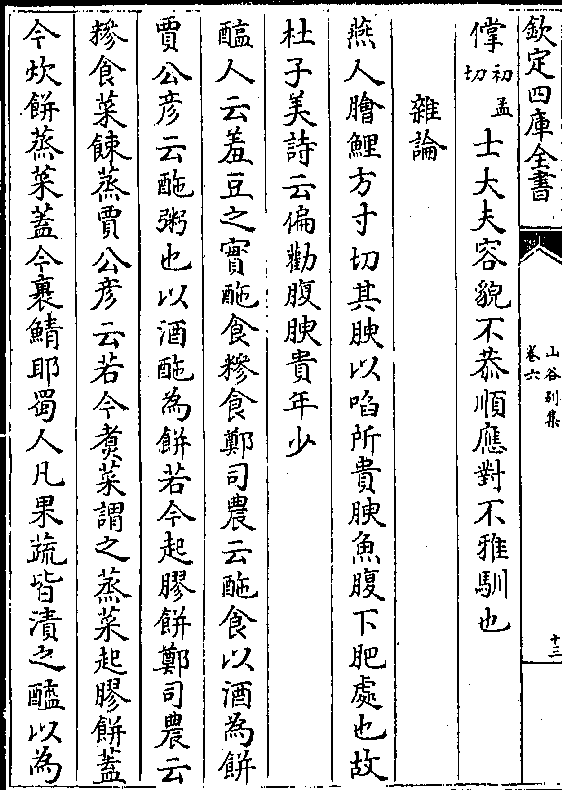 欽定四庫全書
山谷別集
卷六
十三
㑶初孟切士大夫容貌不恭順應對不雅馴也
雜論
燕人膾鯉方寸切其腴以啗所貴腴魚腹下肥處也故
杜子美詩云偏勸腹腴貴年少
醢人云羞豆之實酏食糝食鄭司農云酏食以酒為餅
賈公彦云酏粥也以酒酏為餅若今起膠餅鄭司農云
糝食菜餗蒸賈公彦云若今煑菜謂之蒸菜起膠餅蓋
今炊餅蒸菜蓋今裹鯖耶蜀人凡果蔬皆漬之醯以為